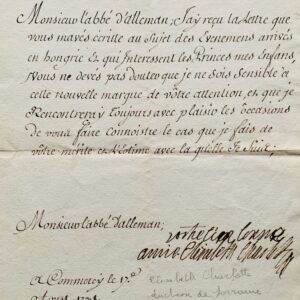 Monsieur l'abbé d'alleman; J'ay reçu la Lettre que
vous m'avés écritte au Sujet des Evenemens arrivés
en hongrie & qui Interessent les Princes mes Enfans,
Vous ne devés pas douter que je ne Sois Sensible à
cette nouvelle marque de votre attention, et que je
Rencontreray toujours avec plaisir les occasions
de vous faire connoistre le cas que je fais de
votre mérite et L'Estime avec laq.lle Je Suis;
Monsieur l'abbé d'alleman;
votre bien bonne
amie Elisabeth Charlotte
a Commercy le 17.e
Elisabeth Charlotte
duchesse de Lorraine